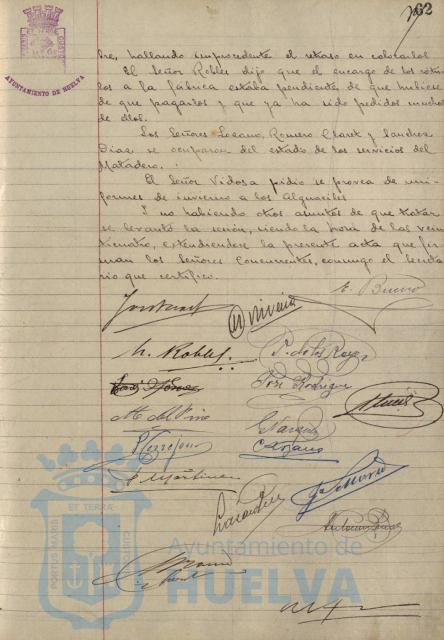 62
AYUNTAMIENTO DE HUELVA
bre, hallando improcedente el retraso en colocarlos
El Señor Robles dijo que el encargo de los rótu-
los a la fábrica estaba pendiente de que hubiese
de que pagarlos y que ya ha sido pedidos muchos
de ellos.
Los Señores Lozano, Romero Claret y Sanchez
Diaz, se ocuparon del estado de los servicios del
Matadero.
El Señor Vidosa pidio se provea de uni-
formes de invierno a los Alguaciles
Y no habiendo otros asuntos de que tratar
se levantó la sesión, siendo la hora de las vein
ticuatro, extendiendose la presente acta que fir-
man los Señores Concurrentes, conmigo el Secreta
rio que certifico.
E. Bueno
M. Robles.
P. de los Reyes
José Rodriguez
M. del Pino
P. Terrejón
C. Lozano
Martinez
Ayuntamiento de
HUELVA